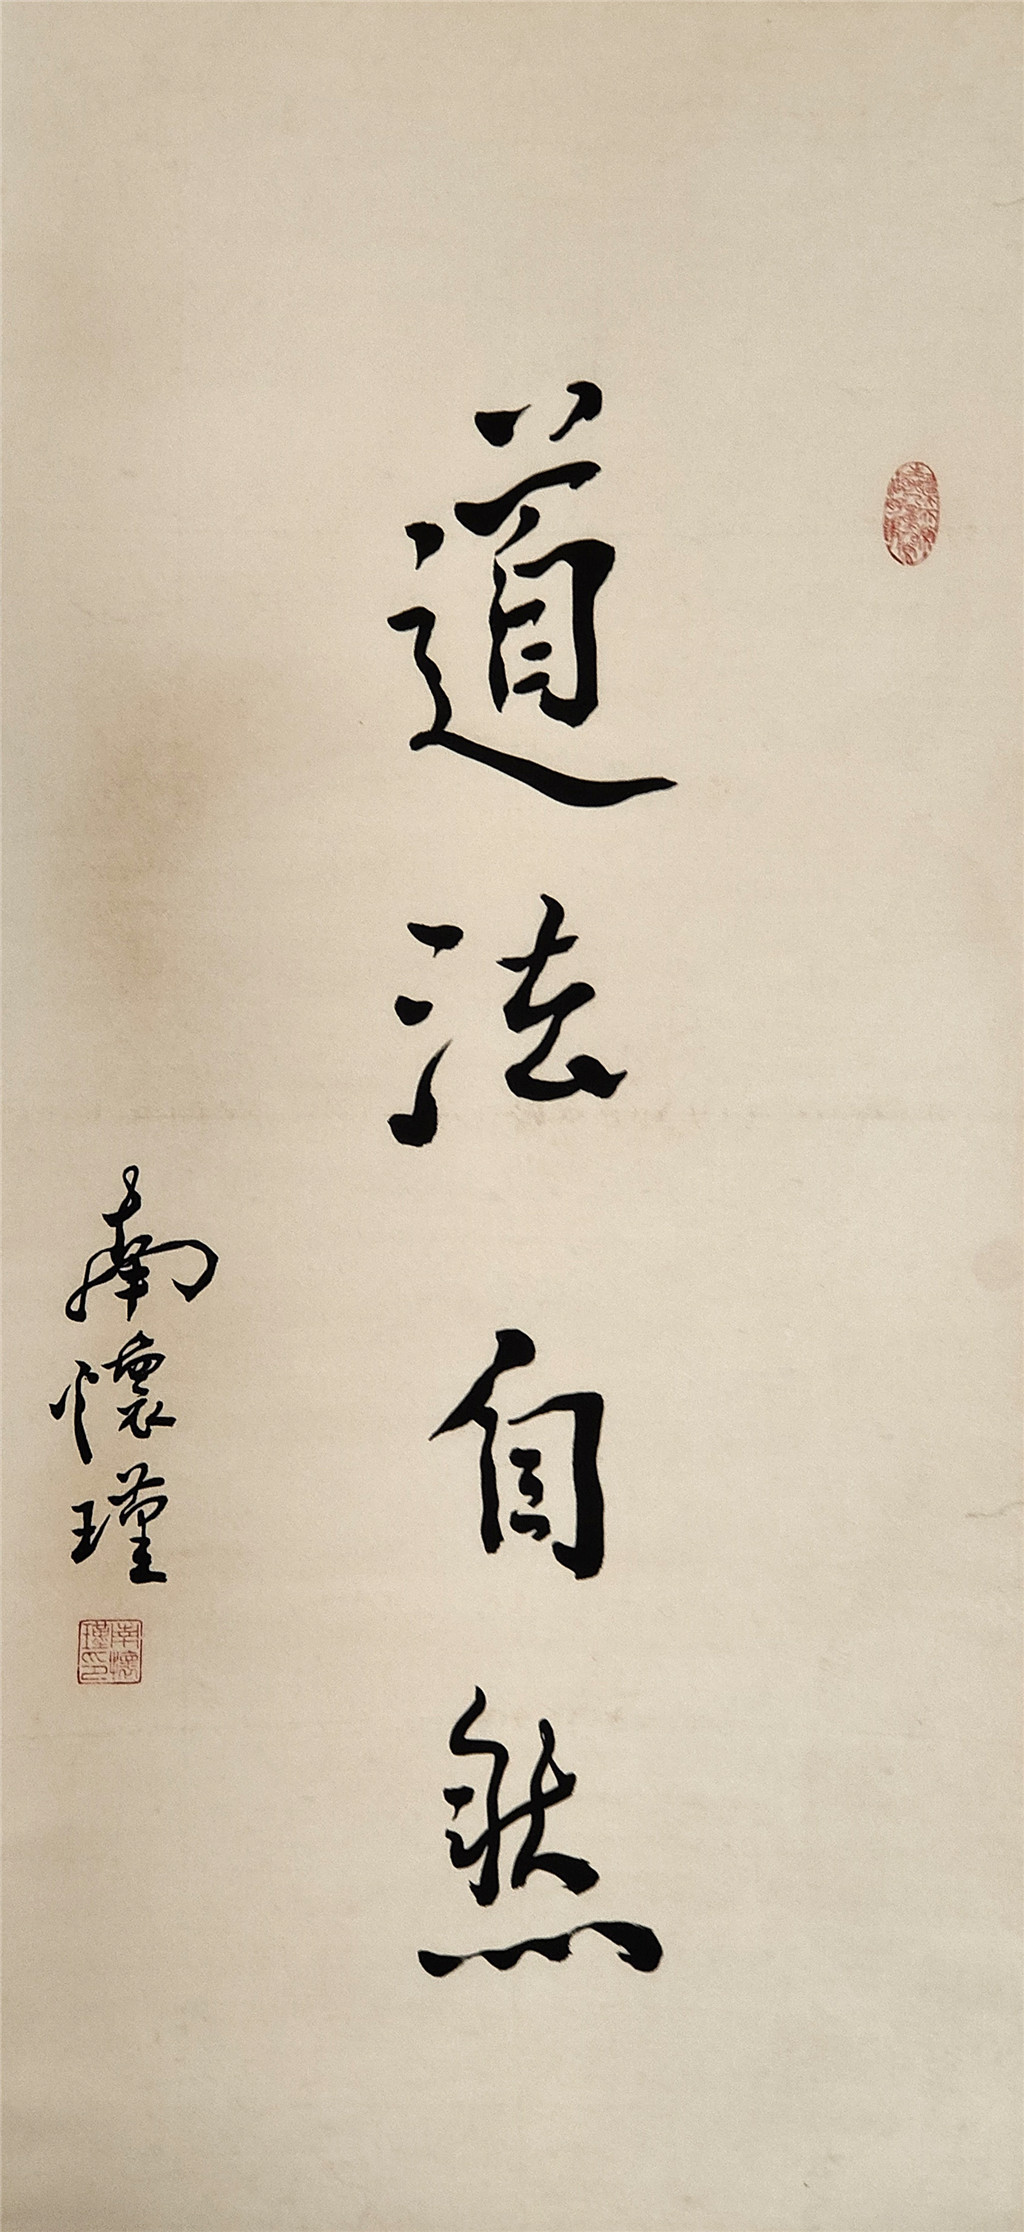 道法自然
南懷瑾
南懷
瑾印